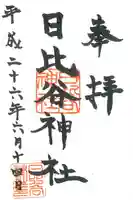 奉拝
日比谷神社
平成二十六年六月十四日